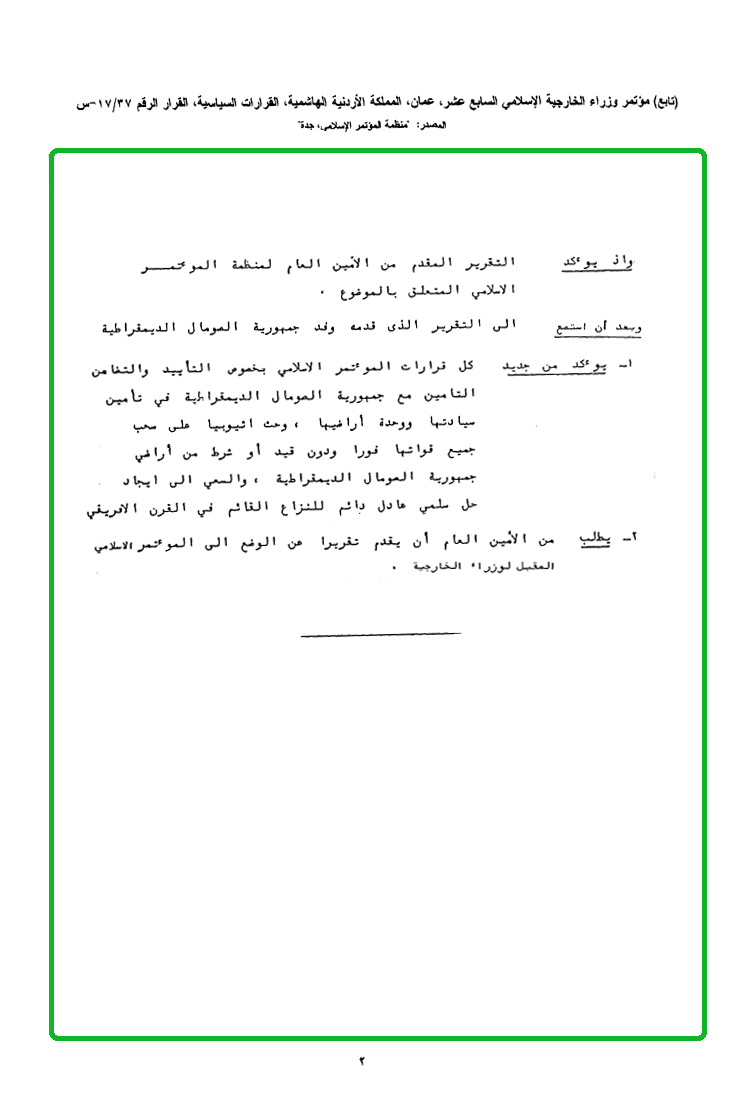 (تابع) مؤتمر وزراء الخارجية الإسلامي السابع عشر، عمان، المملكة الأردنية الهاشمية، القرارات السياسية، القرار الرقم ١٧/٣٧-س
المصدر: "منظمة المؤتمر الإسلامي، جدة"
واذ يوءكد التقرير المقدم من الأمين العام لمنظمة الموءتمـــر
الاسلامي المتعلق بالموضوع .
وبعد أن استمع الى التقرير الذى قدمه وفد جمهورية الصومال الديمقراطية
١ـ يوءكد من جديد كل قرارات الموءتمر الاسلامي بخصوص التأييد والتضامن
التامين مع جمهورية الصومال الديمقراطية في تأمين
سيادتها ووحدة أراضيها ، وحث اثيوبيا على سحب
جميع قواتها فورا ودون قيد أو شرط من أراضي
جمهورية الصومال الديمقراطية ، والسعي الى ايجاد
حل سلمي عادل دائم للنزاع القائم في القرن الافريقي
٢ـ يطلب من الأمين العام أن يقدم تقريرا عن الوضع الى الموءتمر الاسلامي
المقبل لوزراء الخارجية .
٢